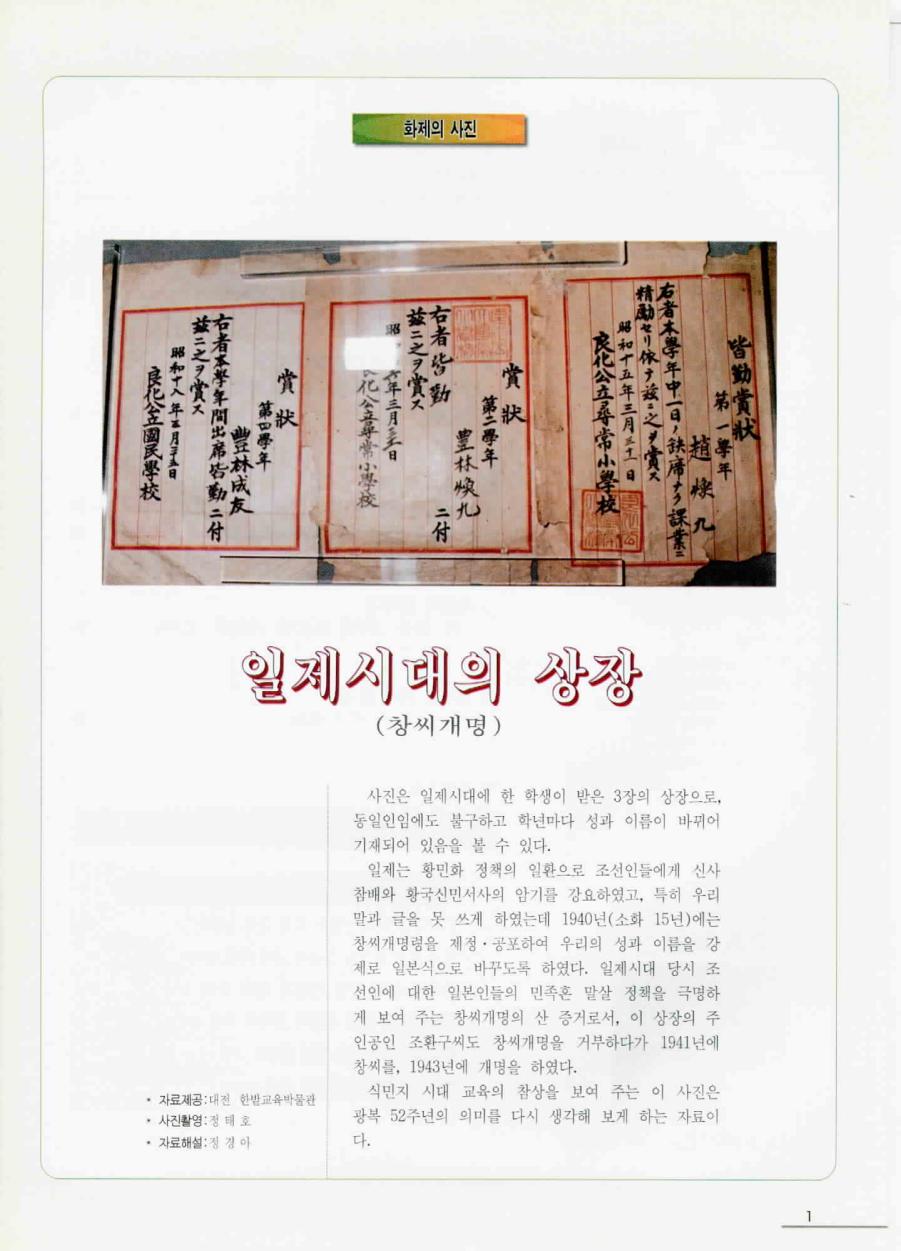 화제의 사진
皆勤賞狀
第一學年
趙煥九
右者本學年中一日ノ缺席ナク課業ニ
精勵セリ依テ玆ニ之ヲ賞ス
昭和十五年三月三十一日
良化公立尋常小學校
賞狀
第二學年
豊林煥九
右者皆勤ニ付
玆ニ之ヲ賞ス
昭 年三月 日
化公立尋常小學校
賞狀
第四學年
豊林成友
右者本學年間出席皆勤ニ付
玆ニ之ヲ賞ス
昭和十八年三月二十五日
良化公立國民學校
일제시대의 상장
(창씨개명)
사진은 일제시대에 한 학생이 받은 3장의 상장으로,
동일인임에도 불구하고 학년마다 성과 이름이 바뀌어
기재되어 있음을 볼 수 있다.
일제는 황민화 정책의 일환으로 조선인들에게 신사
참배와 황국신민서사의 암기를 강요하였고, 특히 우리
말과 글을 못 쓰게 하였는데 1940년(소화 15년)에는
창씨개명령을 제정·공포하여 우리의 성과 이름을 강
제로 일본식으로 바꾸도록 하였다. 일제시대 당시 조
선인에 대한 일본인들의 민족혼 말살 정책을 극명하
게 보여 주는 창씨개명의 산 증거로서, 이 상장의 주
인공인 조환구씨도 창씨개명을 거부하다가 1941년에
창씨를, 1943년에 개명을 하였다.
식민지 시대 교육의 참상을 보여 주는 이 사진은
광복 52주년의 의미를 다시 생각해 보게 하는 자료이
다.
* 자료제공:대전 한밭교육박물관
* 사진촬영:정태호
* 자료해설:정경아
1